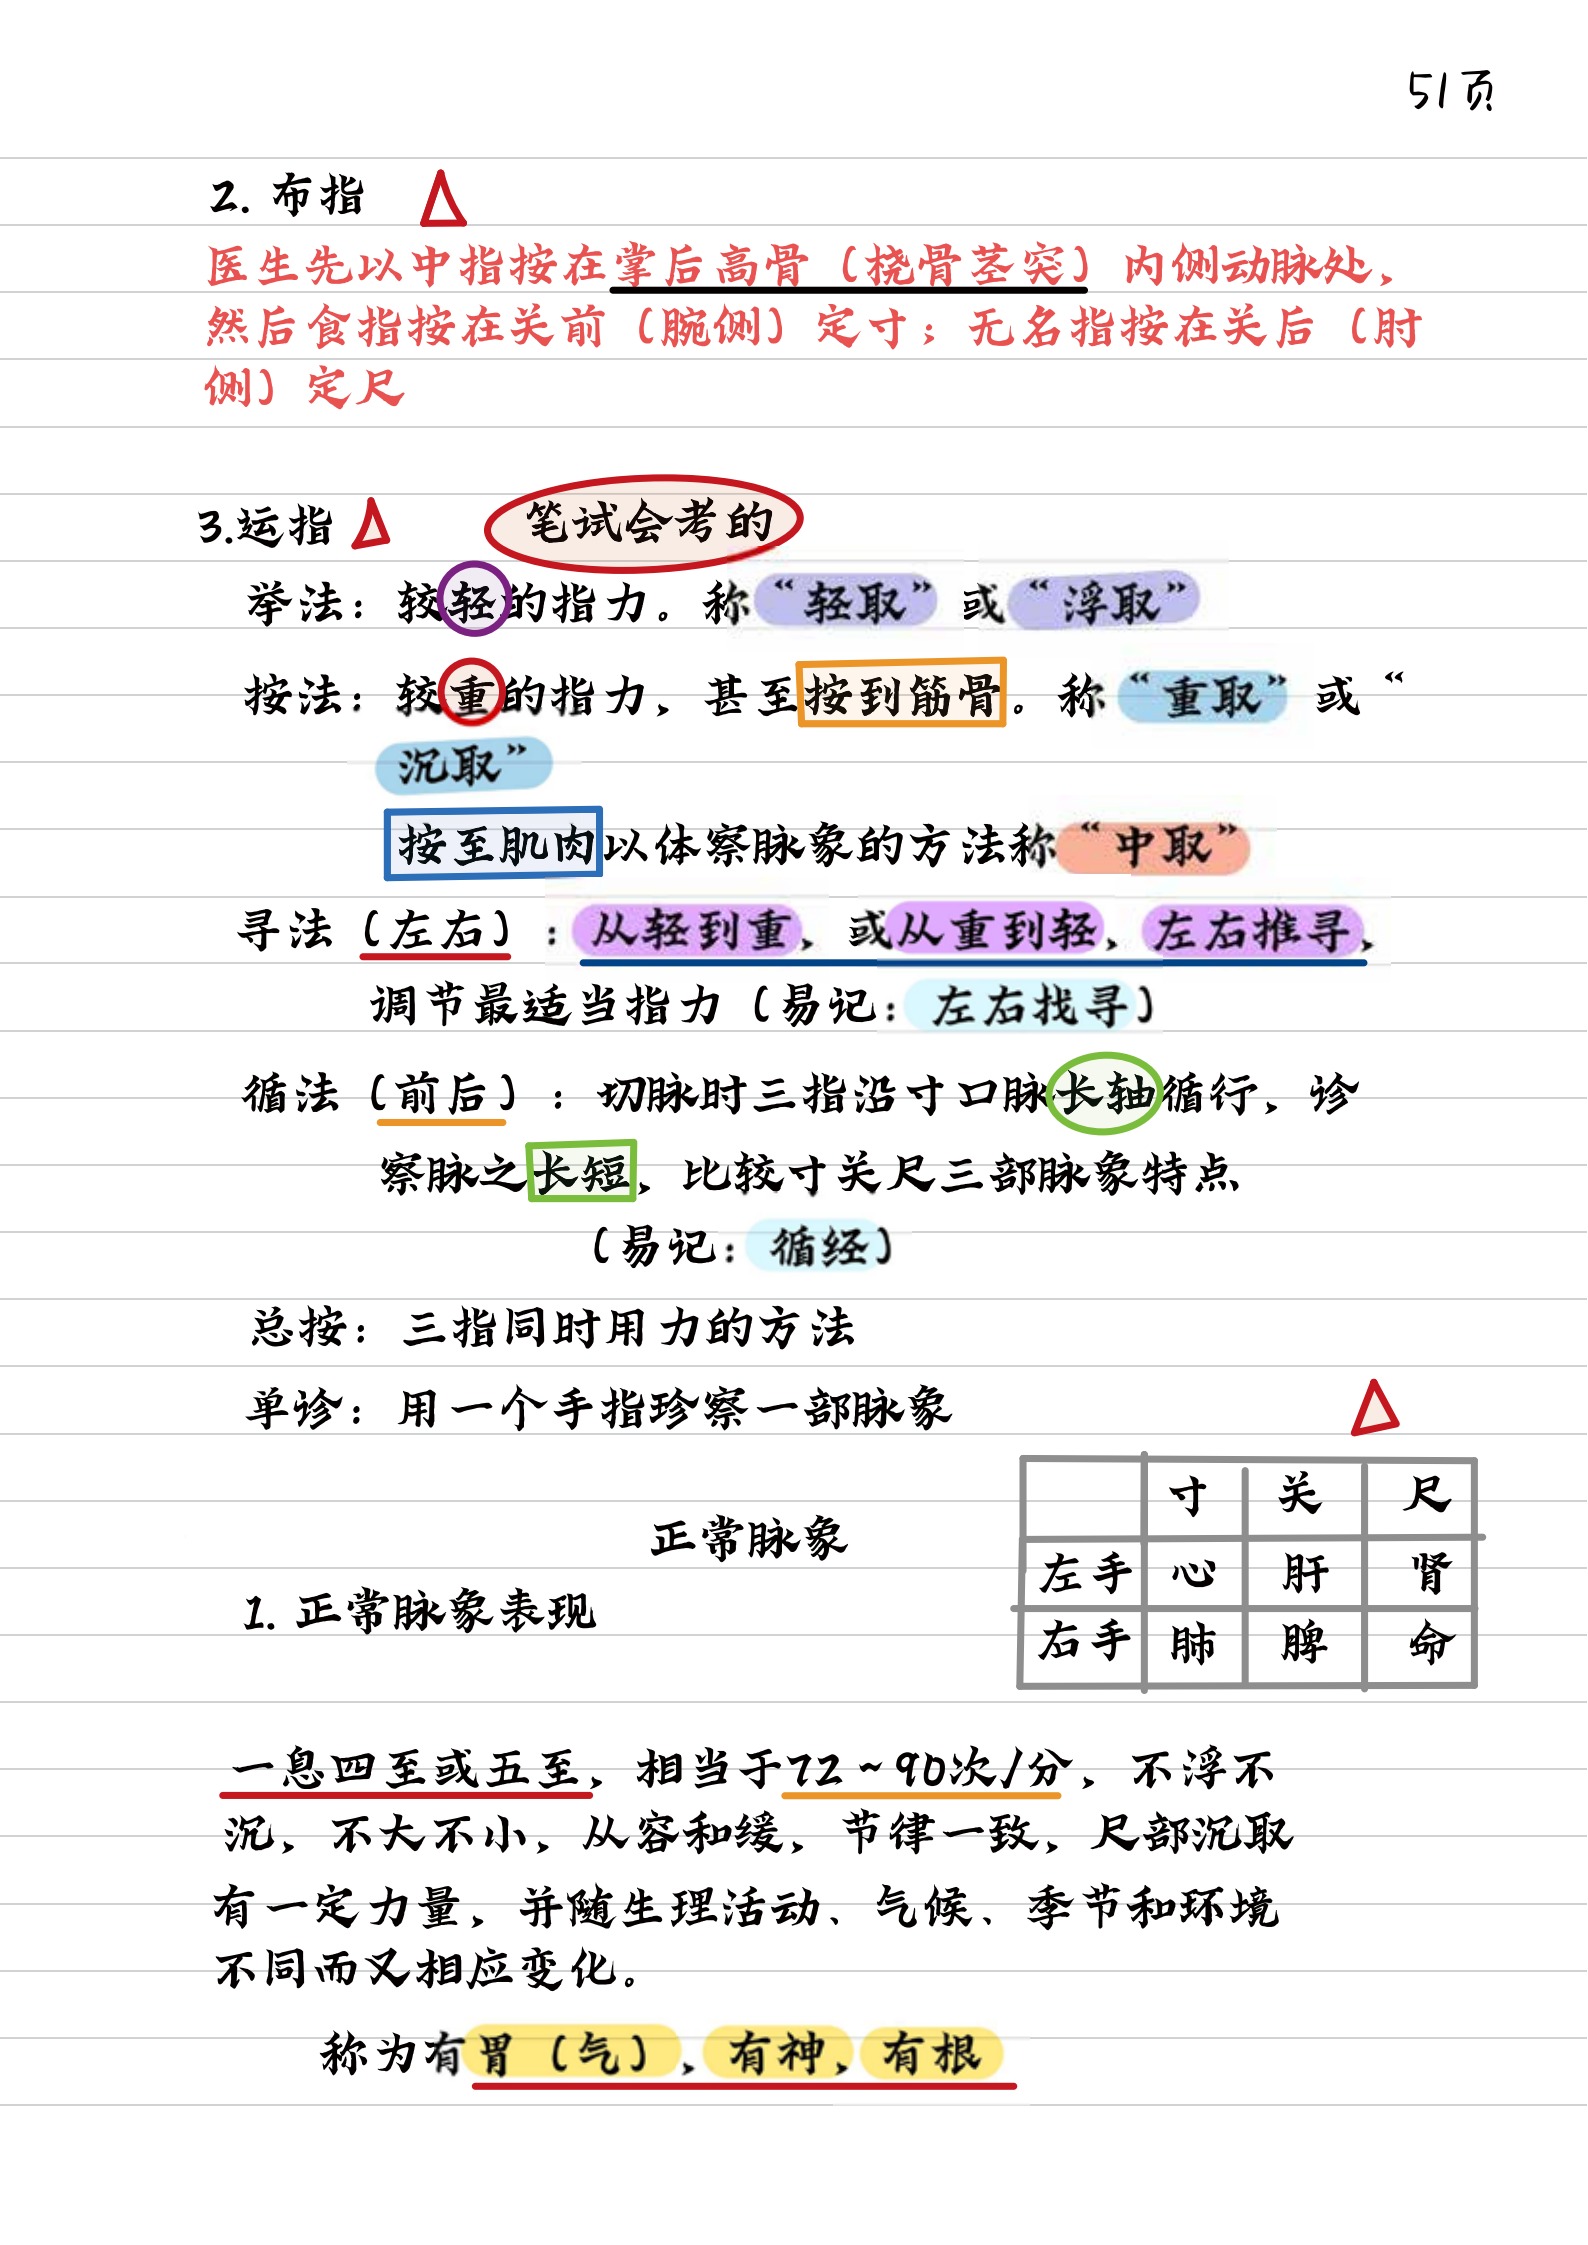 51页
2. 布指
医生先以中指按在掌后高骨（桡骨茎突）内侧动脉处，
然后食指按在关前（腕侧）定寸；无名指按在关后（肘
侧）定尺
3.运指 笔试会考的
举法：较轻的指力。称“轻取”或“浮取”
按法：较重的指力，甚至按到筋骨。称“重取”或“
沉取”
按至肌肉以体察脉象的方法称“中取”
寻法（左右）：从轻到重，或从重到轻，左右推寻，
调节最适当指力（易记：左右找寻）
循法（前后）：切脉时三指沿寸口脉长轴循行，诊
察脉之长短，比较寸关尺三部脉象特点
（易记：循经）
总按：三指同时用力的方法
单诊：用一个手指珍察一部脉象
寸 关 尺
左手 心 肝 肾
右手 肺 脾 命
正常脉象
1. 正常脉象表现
一息四至或五至，相当于72~90次/分，不浮不
沉，不大不小，从容和缓，节律一致，尺部沉取
有一定力量，并随生理活动、气候、季节和环境
不同而又相应变化。
称为有胃（气），有神，有根